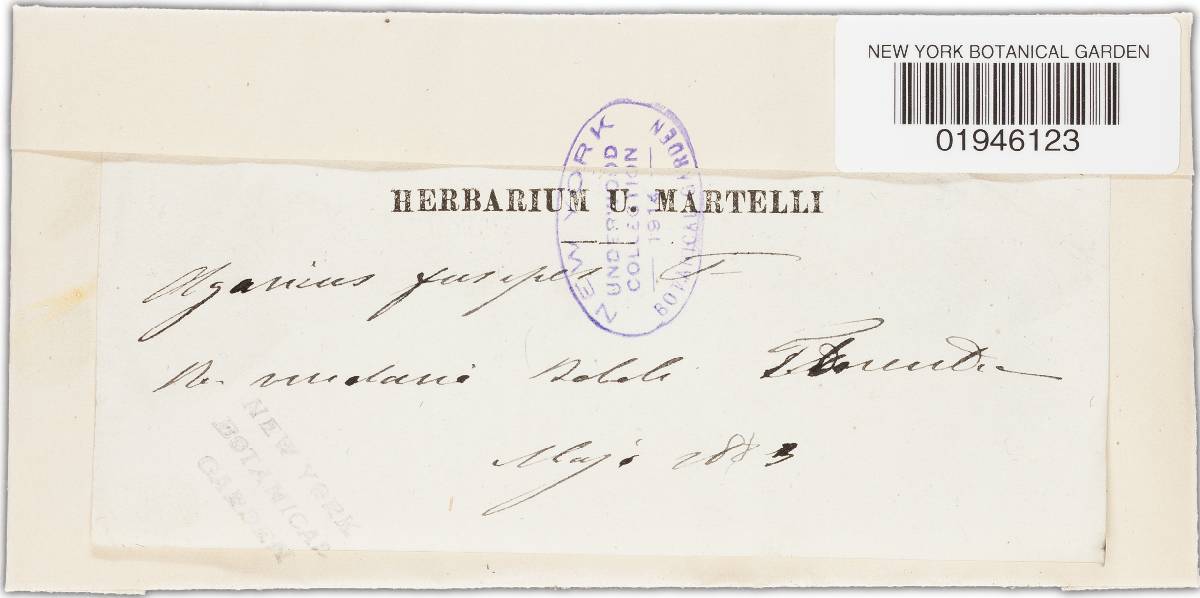 NEW YORK BOTANICAL GARDEN
01946123
NEW YORK BOTANICAL GARDEN
UNDERWOOD
COLLECTION
1914
HERBARIUM U. MARTELLI
Agaricus fusipes F
Boboli Florentia
Majo 1883
NEW YORK
BOTANICAL
GARDEN